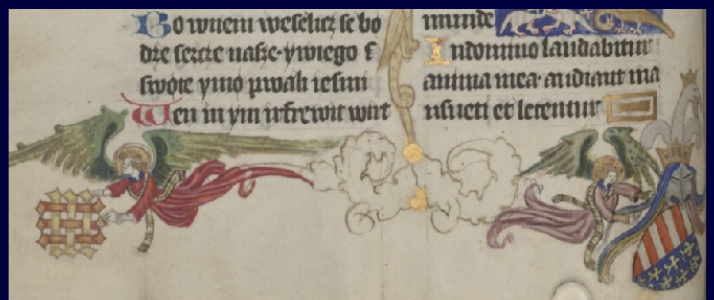 Bo wnem weselicz se bo
dze sercze nasze· ywiego
swote ymo pwali iesm
Wen in ym irfrewit wirt
munde
In domino laudabitur
anima mea· audiant ma
nsueti et letentur